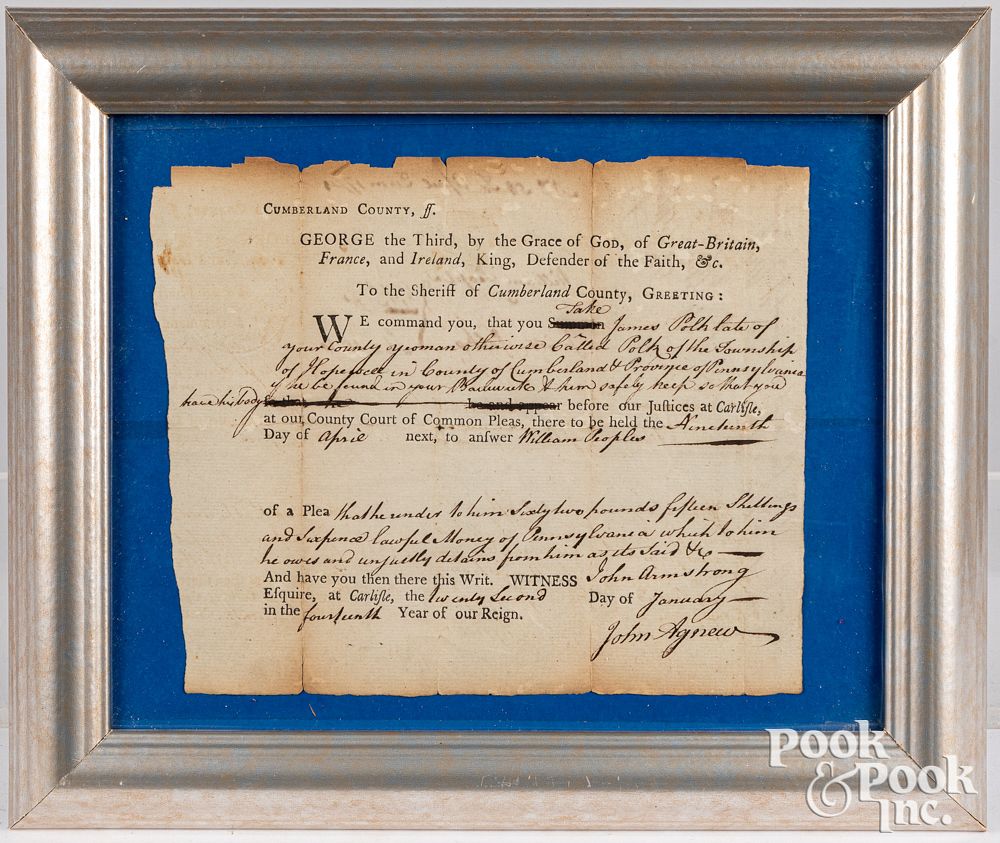 CUMBERLAND COUNTY, ſſ.
GEORGE the Third, by the Grace of GOD, of Great-Britain,
France, and Ireland, King, Defender of the Faith, &c.
To the Sheriff of Cumberland County, GREETING:
Take
WE command you, that you Summon James Polk late of
your County yeoman otherwise Called Polk of the Township
of Hopewell in County of Cumberland & Province of Pennsylvania
if he be found in your Bailiwick & him safely keep so that you
have his Body so that he be and appear before our Juſtices at Carliſle,
at our County Court of Common Pleas, there to be held the Nineteenth
Day of April next, to anſwer William Peoples
of a Plea that he render to him Sixty two pounds fifteen Shillings
and Sixpence lawful Money of Pennsylvania which to him
he owes and unjustly detains from him as its Said &c
And have you then there this Writ. WITNESS John Armstrong
Eſquire, at Carliſle, the twenty Second Day of January
in the fourteenth Year of our Reign.
John Agnew
POOK
& POOK
INC.